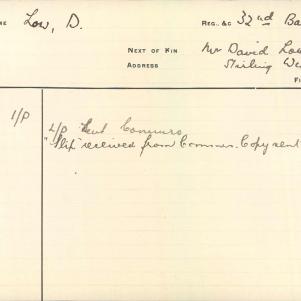 ME Low, D. REG. &C 32nd Ba
NEXT OF KIN Mr David Low
ADDRESS Stirling We
F
1/P L/P Sent Commrs
"Slip" received from Commrs. Copy sent